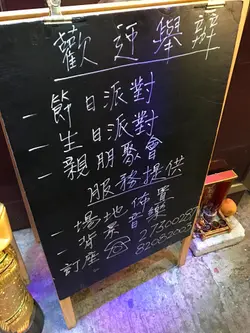 歡迎舉辦
一節日派對
一生日派對
一親朋聚會
服務提供
一場地佈置
背景音樂
訂座☎27300287
82082002